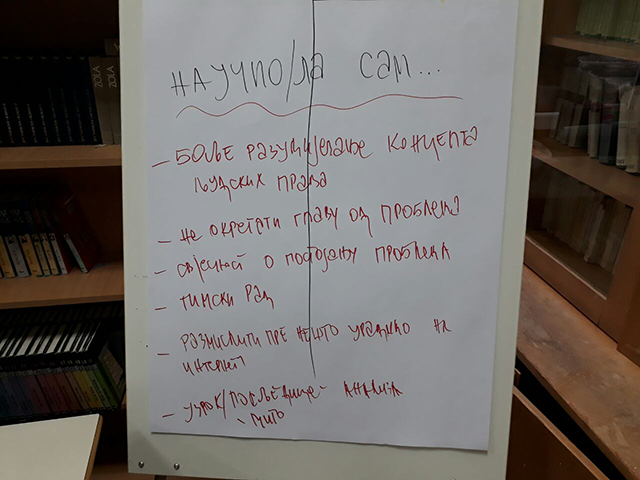 НАУЧИО/ЛА САМ...
- БОЉЕ РАЗУМИЈЕВАЊЕ КОНЦЕПТА
ЉУДСКИХ ПРАВА
- НЕ ОКРЕТАТИ ГЛАВУ ОД ПРОБЛЕМА
- СВЈЕСНОСТ О ПОСТОЈАЊУ ПРОБЛЕМА
- ТИМСКИ РАД
- РАЗМИСЛИТИ ПРЕ НЕШТО УРАДИМО НА
ИНТЕРНЕТ
- УЗРОК/ПОСЉЕДИЦЕ - АНАЛИЗА
ZOLA
ZOLA